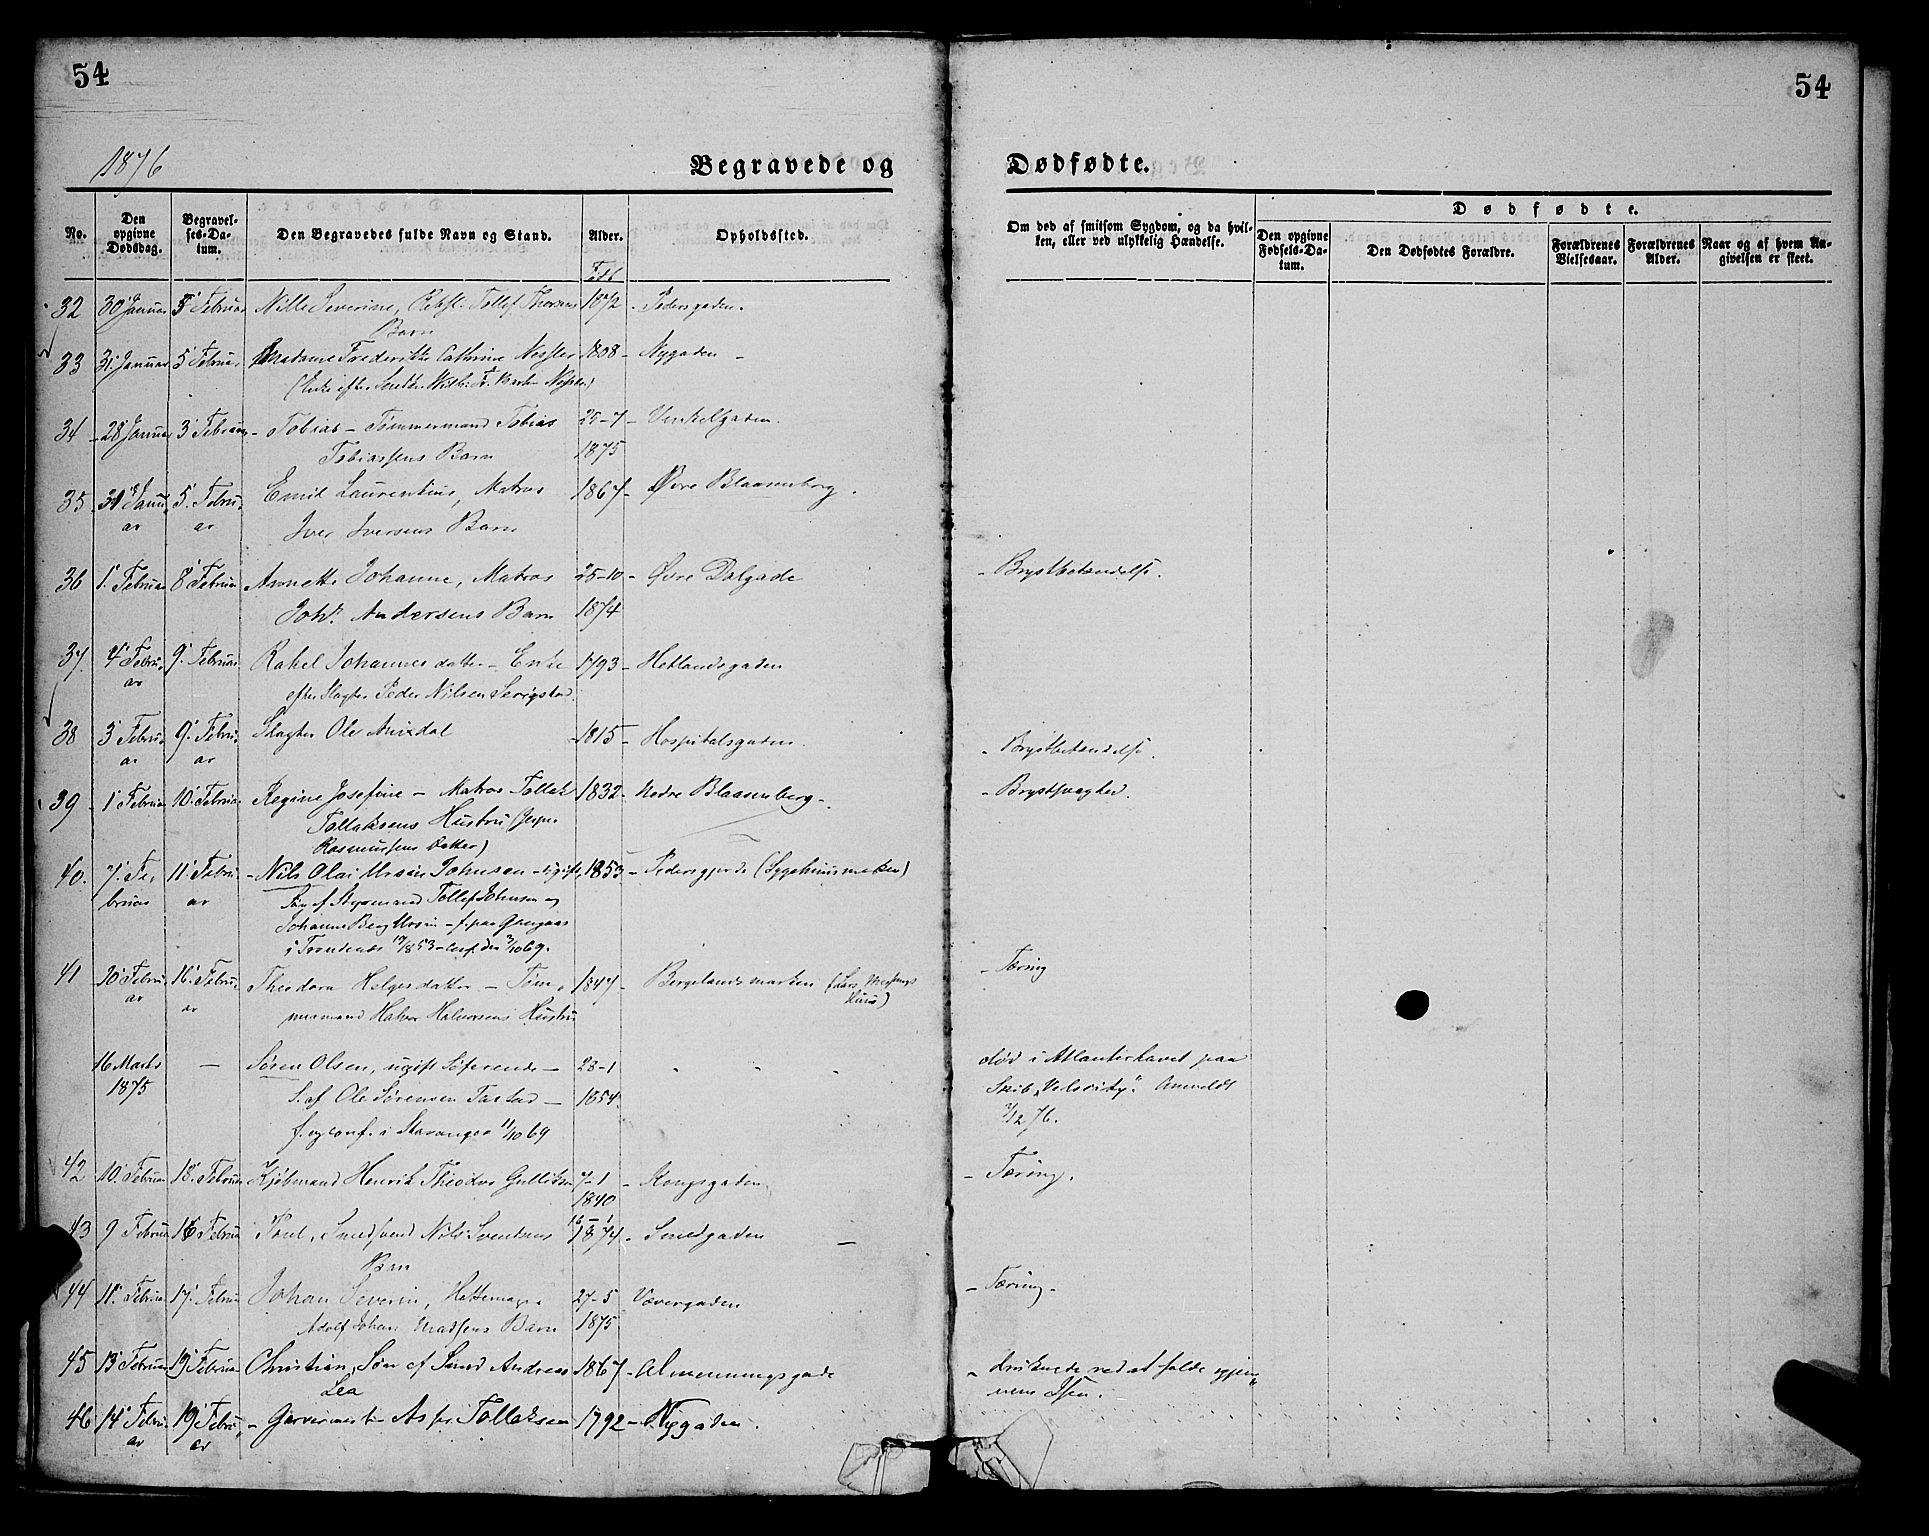 54
54
1876
Begravede og
Dødfødte.
No.
Den opgivne Dødsdag.
Begravelses-Datum.
Den Begravedes fulde Navn og Stand.
Alder.
Opholdssted.
Om død af smitsom Sygdom, og da hvilken, eller ved ulykkelig Hændelse.
Dødfødte.
Den opgivne Fødsels-Datum.
Den Dødfødtes Forældre.
Forældrenes Vielsesaar.
Forældrenes Alder.
Naar og af hvem Angivelsen er skeet.
Født
32 30 Januar 5 Februar Nille Severine, Tollef 1872 - Pedersgaden.
Barn
33 31 Januar 5 Februar Madame Frederikke Cathrine 1808 - Nygaden -
(Enke efter
34 - 28 Januar 3 Februar - Tobias - Tømmermand Tobias 25-7 - Vinkelgaden.
Tobiassens Barn 1875
35 31 Janu- 5. Febru- Emil Laurentius, Matros 1867 - Øvre Blaasenborg.
ar ar Iver Iversens Barn
36 1. Februar 8 Februar Annette Johanne, Matros 25-10 - Øvre Dalgade - Brystbetændelse.
Johs. Andersens Barn 1874
37. 4 Febru- 9. Februar Rakel Johannesdatter - Enke 1793 - Hetlandsgaden
ar efter Slagter Peder Nilsen
38 3 Febru- 9. Febru- Slagter Ole 1815 - Hospitalsgaden. - Brystbetændelse.
ar ar
39 - 1 Februar 10 Februar Regine Josefine - Matros Tollak 1832 - Nedre Blaasenborg - - Brystsvaghed.
Tollaksens Hustru (Jesper
Rasmussens Datter)
40. 7. Fe- 11. Febru- - Nils Olai Johnsen - ugift, 1853 - Pedersgjerde (
bruar ar Søn af Styrmand Tollef Johnsen og
Johanne Berg - f. paa
i Trondenæs 53 - conf. den 3/10 69.
41 10 Febru- 16 Febru- Theodora Helgesdatter - Tøm- 1847 - Bergelandsmarken (Lars - Tæring
ar ar mermand Halvor Halvorsens Hustru Huus)
16 Marts - Søren Olsen, ugift Søfarende - 28-1 " " " død i Atlanterhavet paa
1875 S. af Ole Sørensen Tastad - 1854. Skib "Velocity". Anmeldt
f. og conf. i Stavanger 11/10 69 2/12 76.
42 10. Februar 18. Februar Kjøbmand Henrik Theodor 7-1 - Kongsgaden - Tæring.
1840
43 9 Februar 16 Februar Poul, Smedsvend Nils Svendsens 1874 - Smedgaden -
Barn
44 11. Februar 17. Februar Johan Severin, Hattemager 27-5 Vævergaden - Tæring -
Adolf Johan Madsens Barn 1875
45 13 Februar 19 Februar Christian, Søn af Smed Andreas 1867 - Almenningsgade - druknede ved at falde igjen-
Lea nem Isen.
46 14 Febru- 19 Febru- - Garvermester Tollaksen 1792 - Nygaden.
ar ar